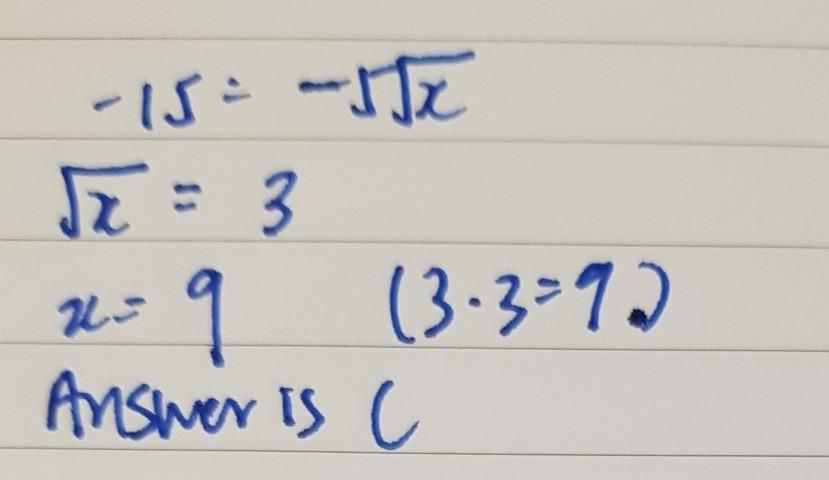 -15 = -5√x
√x = 3
x = 9 (3·3=9.)
Answer is C